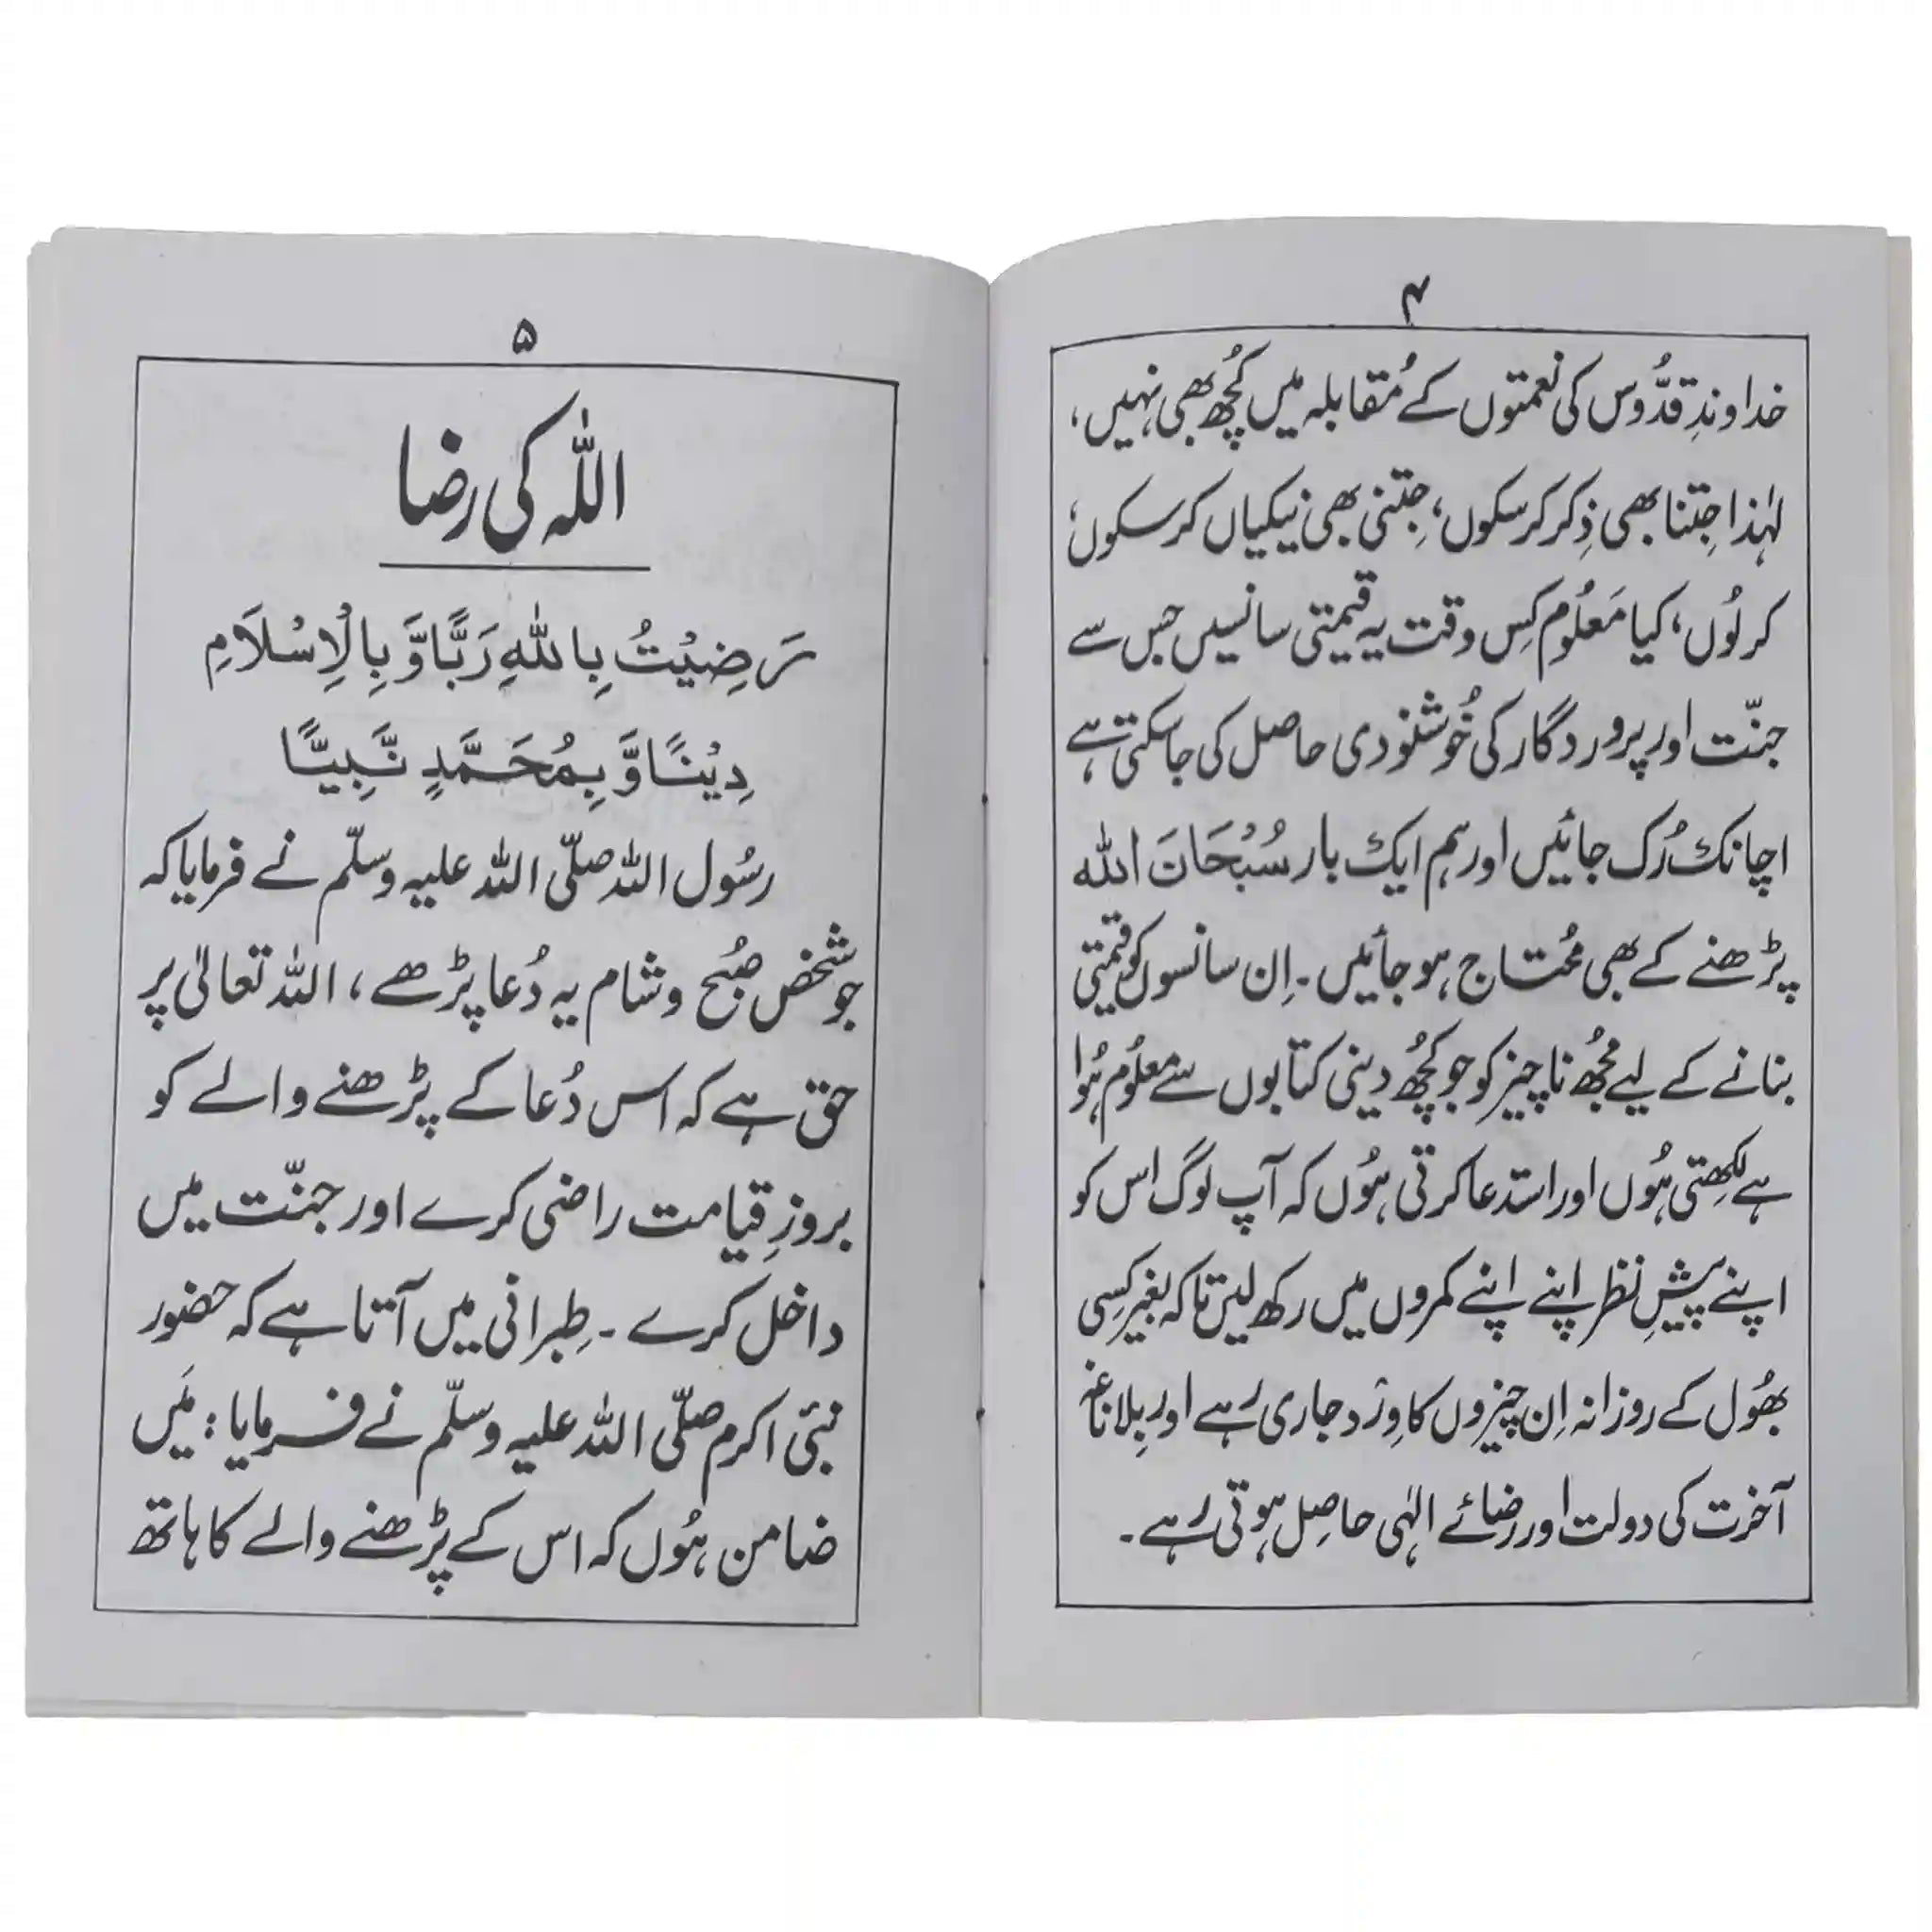 ۴
خداوندِ قدُّوس کی نعمتوں کے مُقابلہ میں کُچھ بھی نہیں،
لہٰذا جِتنا بھی ذِکر کرسکوں، جِتنی بھی نیکیاں کر سکوں،
کر لوُں، کیا مَعلُوم کِس وقت یہ قیمتی سانسیں جس سے
جنّت اور پروردگار کی خُوشنودی حاصل کی جاسکتی ہے
اچانک رُک جائیں اور ہم ایک بار سُبْحَانَ اللہ
پڑھنے کے بھی مُحتاج ہو جائیں۔ اِن سانسوں کو قیمتی
بنانے کے لیے مُجھ ناچیز کو جو کُچھ دینی کتابوں سے معلُوم ہُوا
ہے لکھتی ہُوں اور استدعا کرتی ہُوں کہ آپ لوگ اس کو
اپنے پیشِ نظر اپنے اپنے کمروں میں رکھ لیں تاکہ بغیر کسی
بھُول کے روزانہ اِن چیزوں کا وِرْد جاری رہے اور بِلا ناغہ
آخرت کی دولت اور رضائے الٰہی حاصِل ہوتی رہے۔
۵
اللہ کی رضا
رَضِیْتُ بِاللہِ رَبًّا وَّ بِالْاِسْلَامِ
دِیْنًا وَّ بِمُحَمَّدٍ نَّبِیًّا
رسُول اللہ صلّی اللہ علیہ وسلّم نے فرمایا کہ
جو شخص صُبح و شام یہ دُعا پڑھے، اللہ تعالیٰ پر
حق ہے کہ اس دُعا کے پڑھنے والے کو
بروزِ قیامت راضی کرے اور جنّت میں
داخل کرے ۔ طِبرانی میں آتا ہے کہ حضور
نبیّ اکرم صلّی اللہ علیہ وسلّم نے فرمایا : مَیں
ضامن ہُوں کہ اس کے پڑھنے والے کا ہاتھ